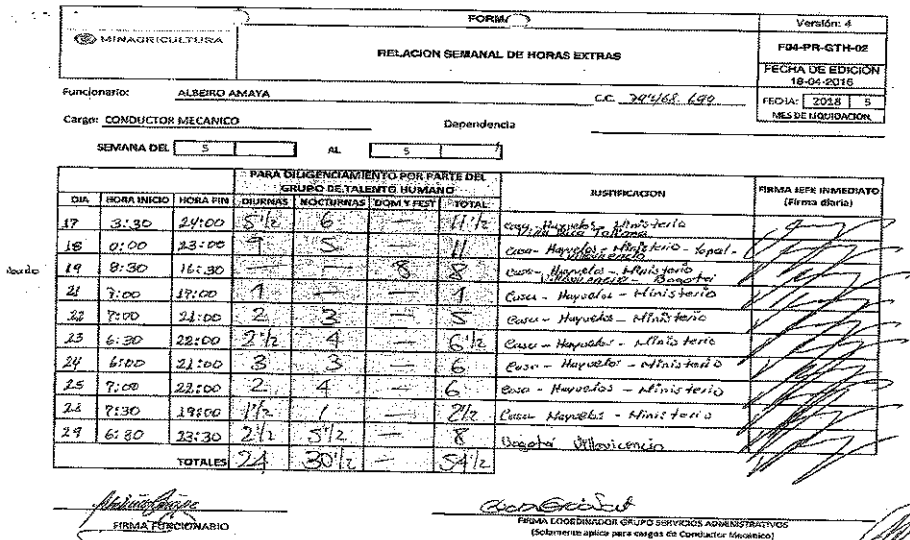 FORM
Versión: 4
MINAGRICULTURA
RELACION SEMANAL DE HORAS EXTRAS
F04-PR-GTH-02
FECHA DE EDICIÓN
18-04-2016
Funcionario: ALBEIRO AMAYA
C.C.
FECHA: 2018 5
MES DE LIQUIDACION
Cargo: CONDUCTOR MECANICO Dependencia
SEMANA DEL 5 AL 5
PARA DILIGENCIAMIENTO POR PARTE DEL GRUPO DE TALENTO HUMANO
DIA HORA INICIO HORA FIN DIURNAS NOCTURNAS DOM Y FEST TOTAL JUSTIFICACION FIRMA JEFE INMEDIATO (Firma diaria)
17 3:30 24:00 5 1/2 6 — 11 1/2 Casa - Hayuelos - Ministerio
18 0:00 23:00 9 5 — 11 Casa - Hayuelos - Ministerio - Yopal - Villavicencio
19 8:30 16:30 — — 8 8 Casa - Hayuelos - Ministerio Villavicencio - Bogotá
21 7:00 17:00 1 — — 1 Casa - Hayuelos - Ministerio
22 7:00 21:00 2 3 — 5 Casa - Hayuelos - Ministerio
23 6:30 22:00 2 1/2 4 — 6 1/2 Casa - Hayuelos - Ministerio
24 6:00 21:00 3 3 — 6 Casa - Hayuelos - Ministerio
25 7:00 22:00 2 4 — 6 Casa - Hayuelos - Ministerio
7:30 19:00 1 1/2 1 — 2 1/2 Casa Hayuelos - Ministerio
29 6:30 23:30 2 1/2 5 1/2 — 8 Bogotá Villavicencio
TOTALES 24 30 1/2 — 54 1/2
FIRMA FUNCIONARIO
FIRMA COORDINADOR GRUPO SERVICIOS ADMINISTRATIVOS
(Solamente aplica para cargos de Conductor Mecánico)